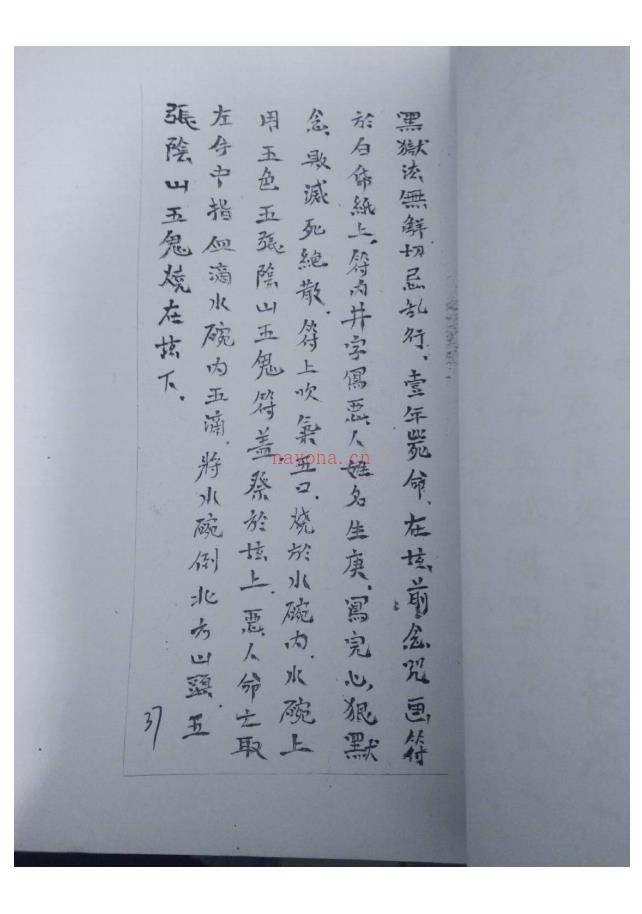 黑獄法無解切忌乱行．壹年斃命．在坛前念咒画符
於白佈紙上．符内井字寫惡人姓名生庚．寫完心狠默
念敗滅死絕散．符上吹氣五口．燒於水碗内．水碗上
用五色五張陰山五鬼符盖．祭於坛上．惡人命亡取
左手中指血滴水碗内五滴．將水碗倒北方山頭．五
張陰山五鬼燒在坛下．
37
nayona.cn